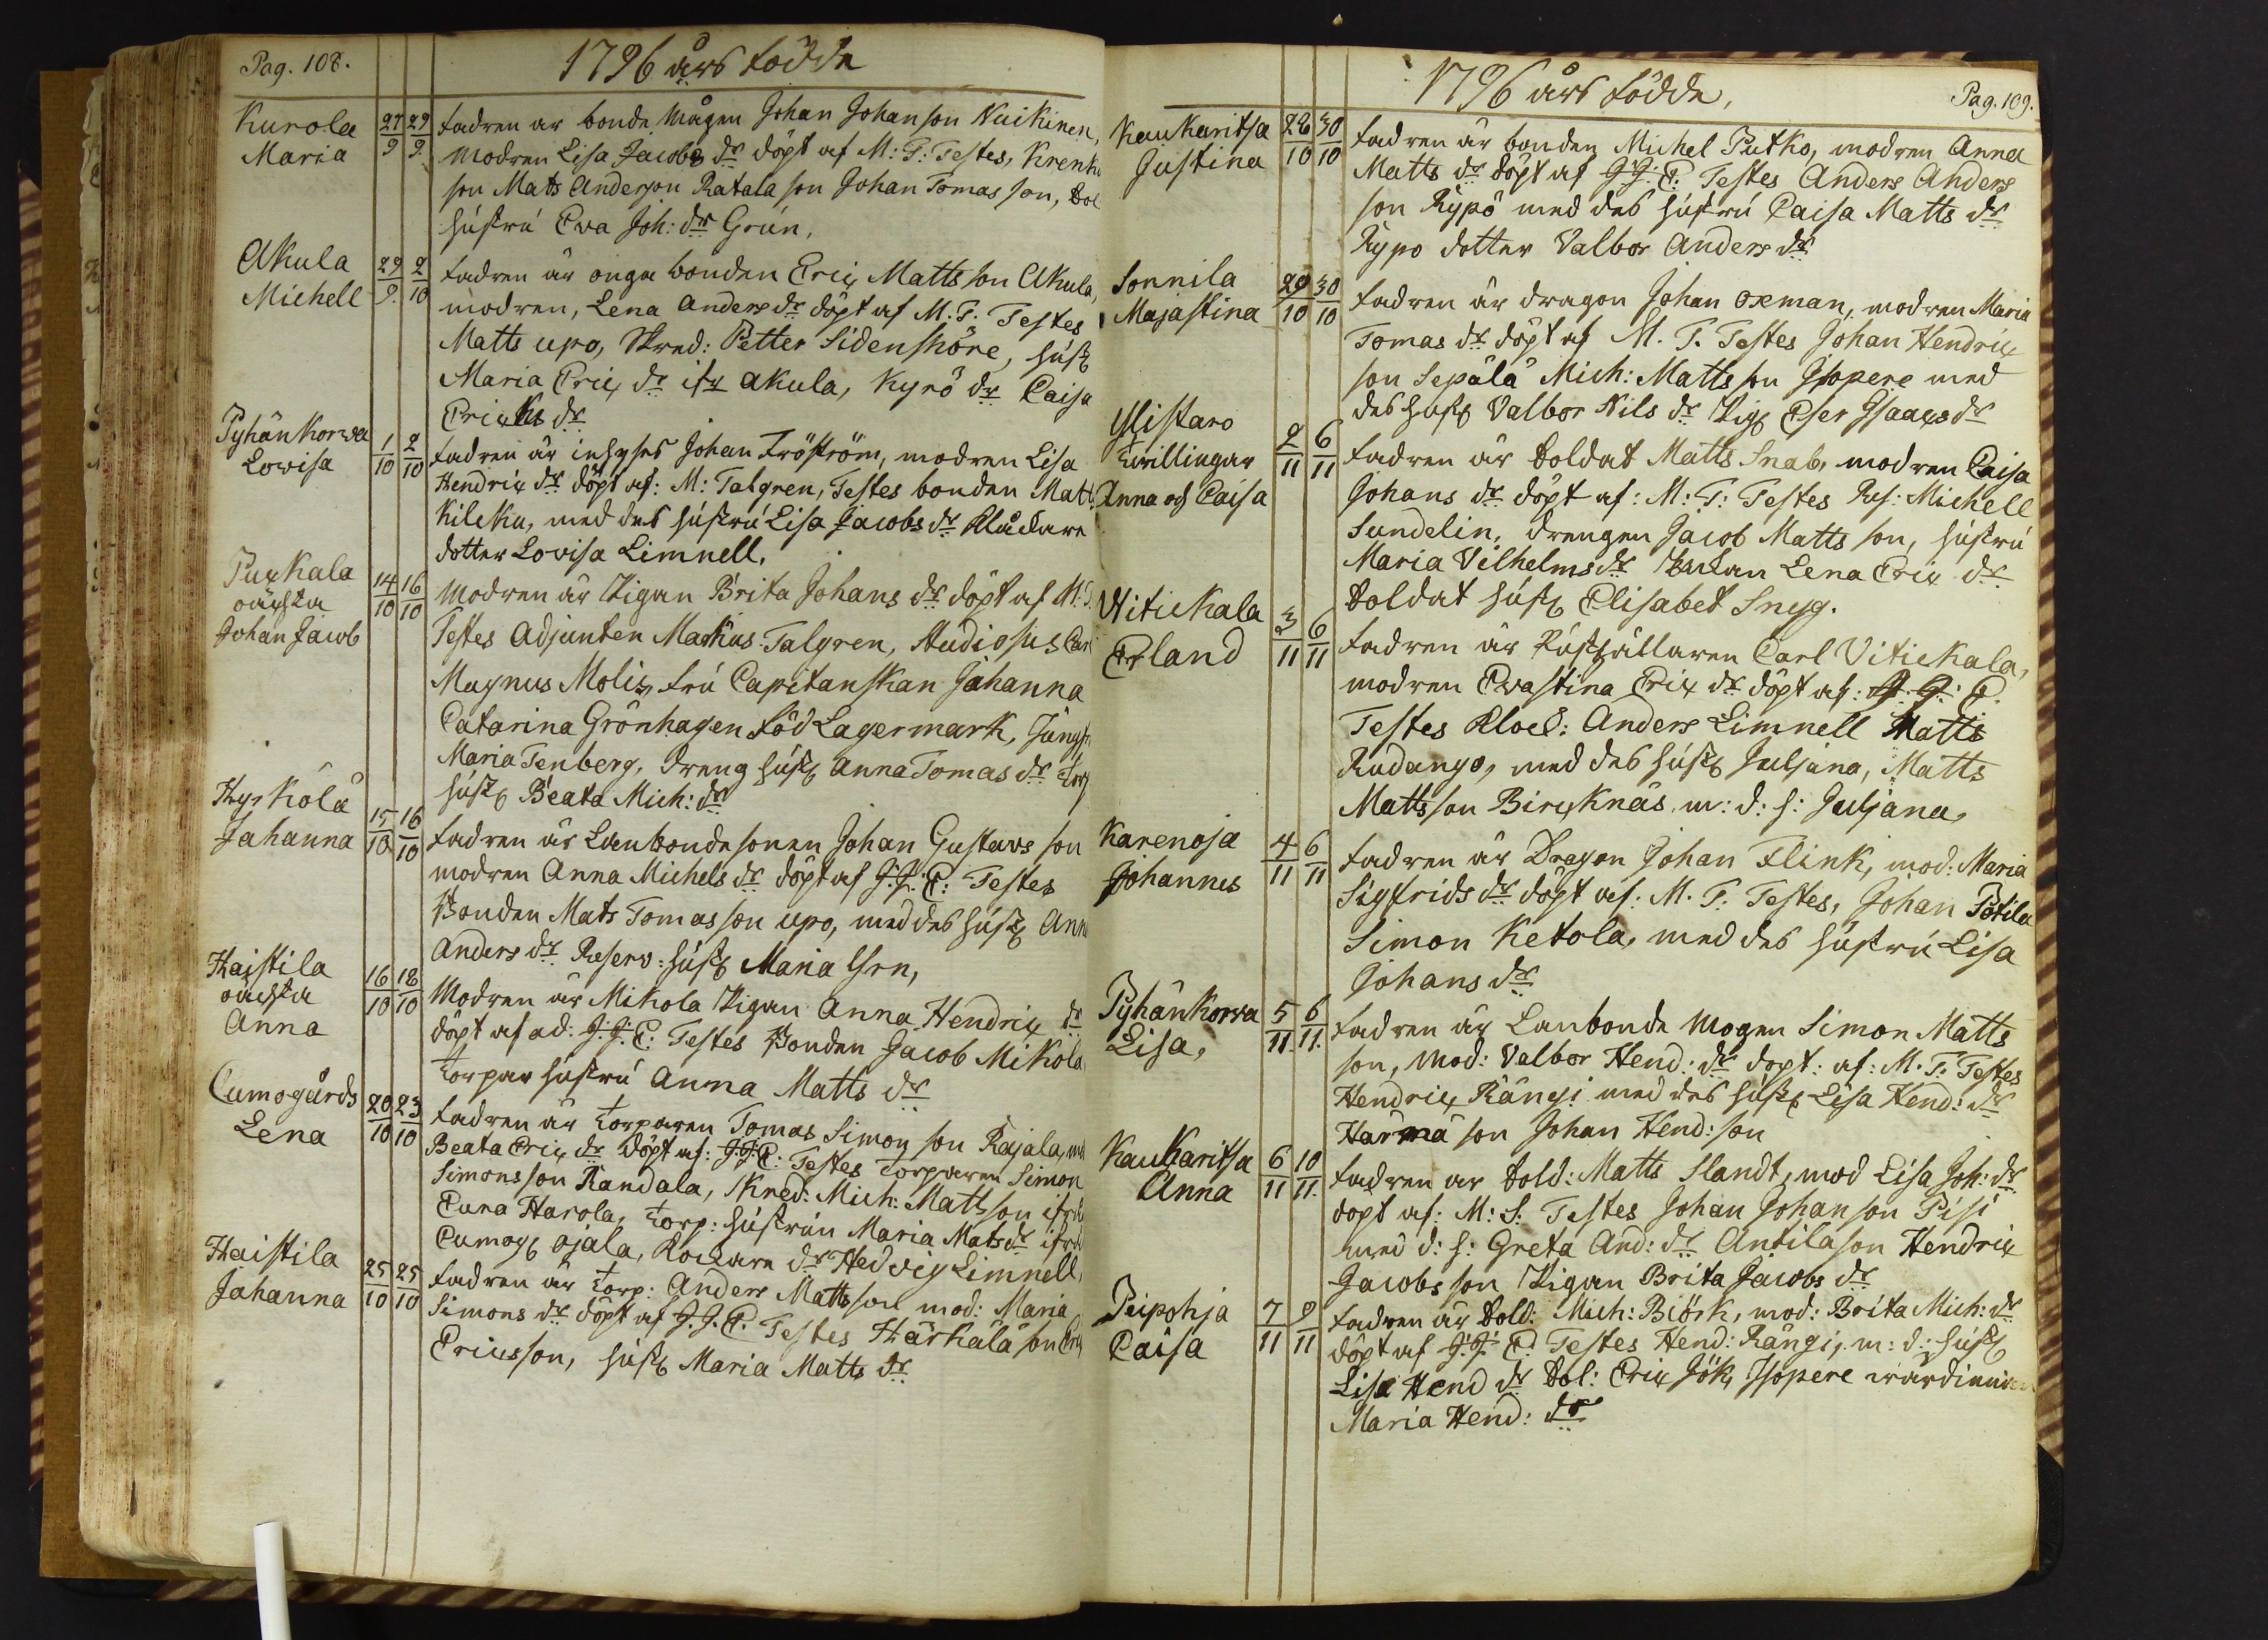 Pag. 108.
1796 års födde
Kurola
Maria
27/9 29/9
fadren är bonde mågen Johan Johan son Kuikinen,
modren Lisa Jacobs dr döpt af M: T: Testes,
son Mats Anderson Ratala son Johan Tomas son,
hustru Eva Joh: dr Grun.
Akula
Michell
29/9 2/10
fadren är unga bonden Eric Matts son Akula,
modren, Lena Anders dr döpt af M. T. Testes
Matts upo, Skred: Petter Sidensköre, hust
Maria Eric dr ifr akula, Kyrö dr Caisa
Ericks dr
Pyhänkorva
Lovisa
1/10 2/10
fadren är inhyses Johan Fröström, modren Lisa
Hendric dr döpt af: M: Talgren, Testes bonden Matts
Kileku, med des hustru Lisa Jacobs dr Klåckare
dotter Lovisa Limnell.
Puxkala
oächta
Johan Jacob
14/10 16/10
Modren är Pigan Brita Johans dr döpt af M: T.
Testes Adjunten Markus Talgren, Studiosus Carl
Magnus Molis, fru Capitanskan Johanna
Catarina Grönhagen föd Lagermark, Jungfr
Maria Tenberg, dreng hust Anna Tomas dr Torp
hust Beata Mich: dr
Hyrkölä
Johanna
15/10 16/10
fadren är Lanbonde sonen Johan Gustavs son
modren Anna Michels dr döpt af J. J. E: Testes
Bonden Mats Tomas son upo, med des hust Anna
Anders dr Reserv: hust Maria
Haistila
oächta
Anna
16/10 18/10
Modren är Mikola Pigan Anna Hendric dr
döpt af ad: J. J. E: Testes Bonden Jacob Mikola,
Torpar hustru Anna Matts dr
Cumogårds
Lena
20/10 23/10
fadren är Torparen Tomas Simon son Rajala,
Beata Eric dr döpt af: J. J. E: Testes Torparen Simon
Simons son Randala, Skred: Mich: Matts son ifrå
Eura Harola, Torp: hustrun Maria Mats dr ifrå
Cumog ojala, Kockare dr Hedvig Limnell,
Haistila
Johanna
25/10 25/10
fadren är Torp: Anders Matts son mod: Maria
Simons dr döpt af J. J. E. Testes Härkälä son Eric
Ericsson, hust Maria Matts dr
1796 års födde,
Pag. 109.
Kaukaritsa
Justina
28/10 30/10
fadren är bonden Michel Putko, modren Anna
Matts dr döpt af J. J. E: Testes Anders Anders
son Rypö med des hustru Caisa Matts dr
Rypo dotter Valbor Anders dr
Sonnila
Majastina
29/10 30/10
fadren är dragon Johan oxman, modren Maria
Tomas dr döpt af M. T. Testes Johan Hendric
son Sepälä Mich: Matts son Isopere med
des hust Valbor Nils dr Pig Eser Isaacs dr
Ylistaro
Tvillingar
Anna och Caisa
2/11 6/11
fadren är Soldat Matts Snab, modren Caisa
Johans dr döpt af: M: T: Testes Ref: Michell
Sundelin, drengen Jacob Matts son, hustru
Maria Vilhelms dr Enkan Lena Eric dr
Soldat hust Elisabet Snyg.
Vitickala
Erland
3/11 6/11
fadren är Rusthållaren Carl Vitickala,
modren Evastina Eric dr döpt af: J. J. E.
Testes Klock: Anders Limnell Matts
Rudango, med des hust Juljana, Matts
Matts son Bircknäs m: d: h: Juljana,
Karenoja
Johannes
4/11 6/11
fadren är Dragon Johan Flink, mod: Maria
Sigfrids dr döpt af: M. T. Testes, Johan Potila
Simon Ketola, med des hustru Lisa
Johans dr
Pyhänkorva
Lisa,
5/11 6/11
fadren är Lanbonde Mogen Simon Matts
son, Mod: Valbor Hend: dr döpt: af: M. T. Testes
Hendric Rängi med des hust Lisa Hend: dr
Härmä son Johan Hend: son
Kaukaritsa
Anna
6/11 10/11
fadren är Sold: Matts Slandt, mod Lisa Joh: dr
döpt af: M: S. Testes Johan Johan son Pisi
med d: h: Greta And: dr Antila son Hendric
Jacobs son Pigan Brita Jacobs dr
Peipohja
Caisa
7/11 9/11
fadren är Sold: Mich: Biörk, mod: Brita Mich: dr
döpt af J. J. E. Testes Hend: Rängi, m: d: hust
Lisa Hend dr Sol: Eric Jök, Isopere värdinnan
Maria Hend: dr